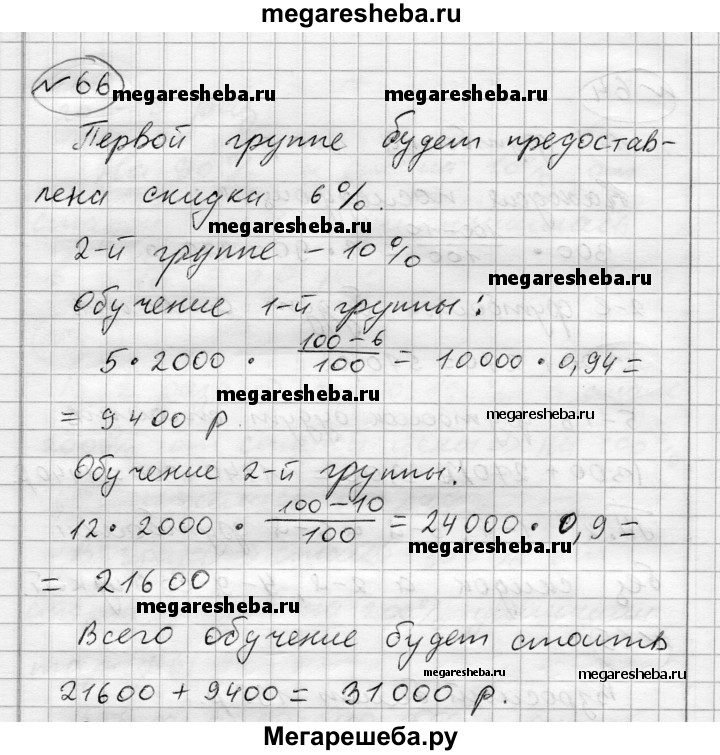 megaresheba.ru
№66
megaresheba.ru megaresheba.ru
Первой группе будет предостав-
лена скидка 6%.
megaresheba.ru
2-й группе - 10%
megaresheba.ru
Обучение 1-й группы:
5 · 2000 · (100 - 6)/100 = 10000 · 0,94 =
megaresheba.ru megaresheba.ru
= 9400 р.
Обучение 2-й группы:
12 · 2000 · (100 - 10)/100 = 24000 · 0,9 =
megaresheba.ru
= 21600
megaresheba.ru
Всего обучение будет стоить
megaresheba.ru megaresheba.ru
21600 + 9400 = 31000 р.
Мегарешеба.ру